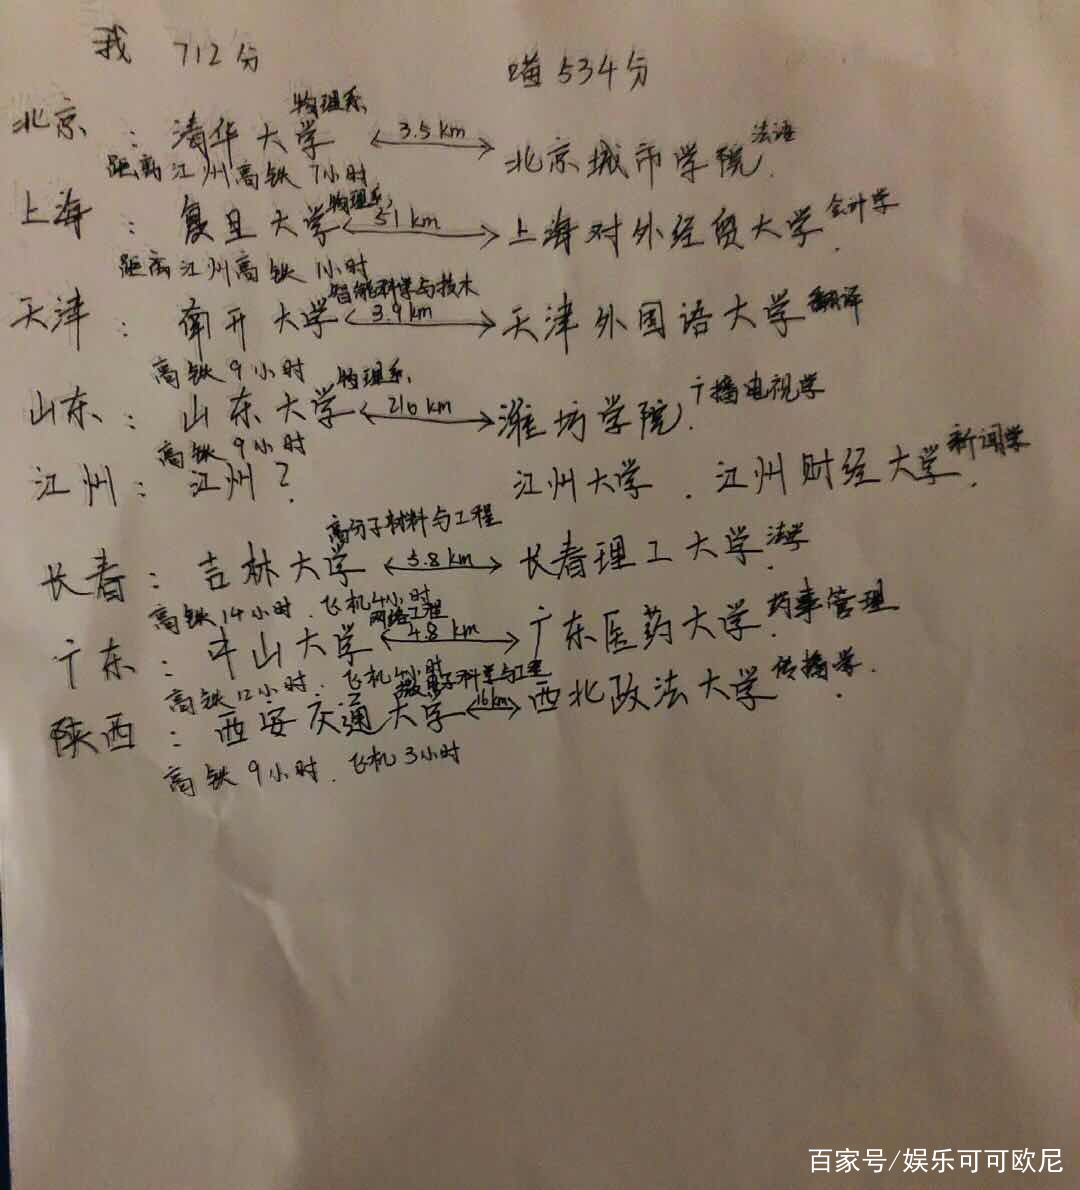 我 712分 喵534分
物理系
北京：清华大学 3.5km 北京城市学院 法语
距离江州高铁7小时
物理系
上海：复旦大学 51km 上海对外经贸大学 会计学
距离江州高铁1小时
智能科学与技术
天津：南开大学 3.9km 天津外国语大学 翻译
高铁9小时
物理系
山东：山东大学 216km 潍坊学院. 广播电视学
高铁9小时
江州：江州？ 江州大学．江州财经大学 新闻学
高分子材料与工程
长春：吉林大学 5.8km 长春理工大学 法学
高铁14小时．飞机4小时
网络工程
广东：中山大学 4.8km 广东医药大学. 药事管理
高铁12小时．飞机4小时
微电子科学与工程
陕西：西安交通大学 16km 西北政法大学 传播学．
高铁9小时．飞机3小时
百家号/娱乐可可欧尼